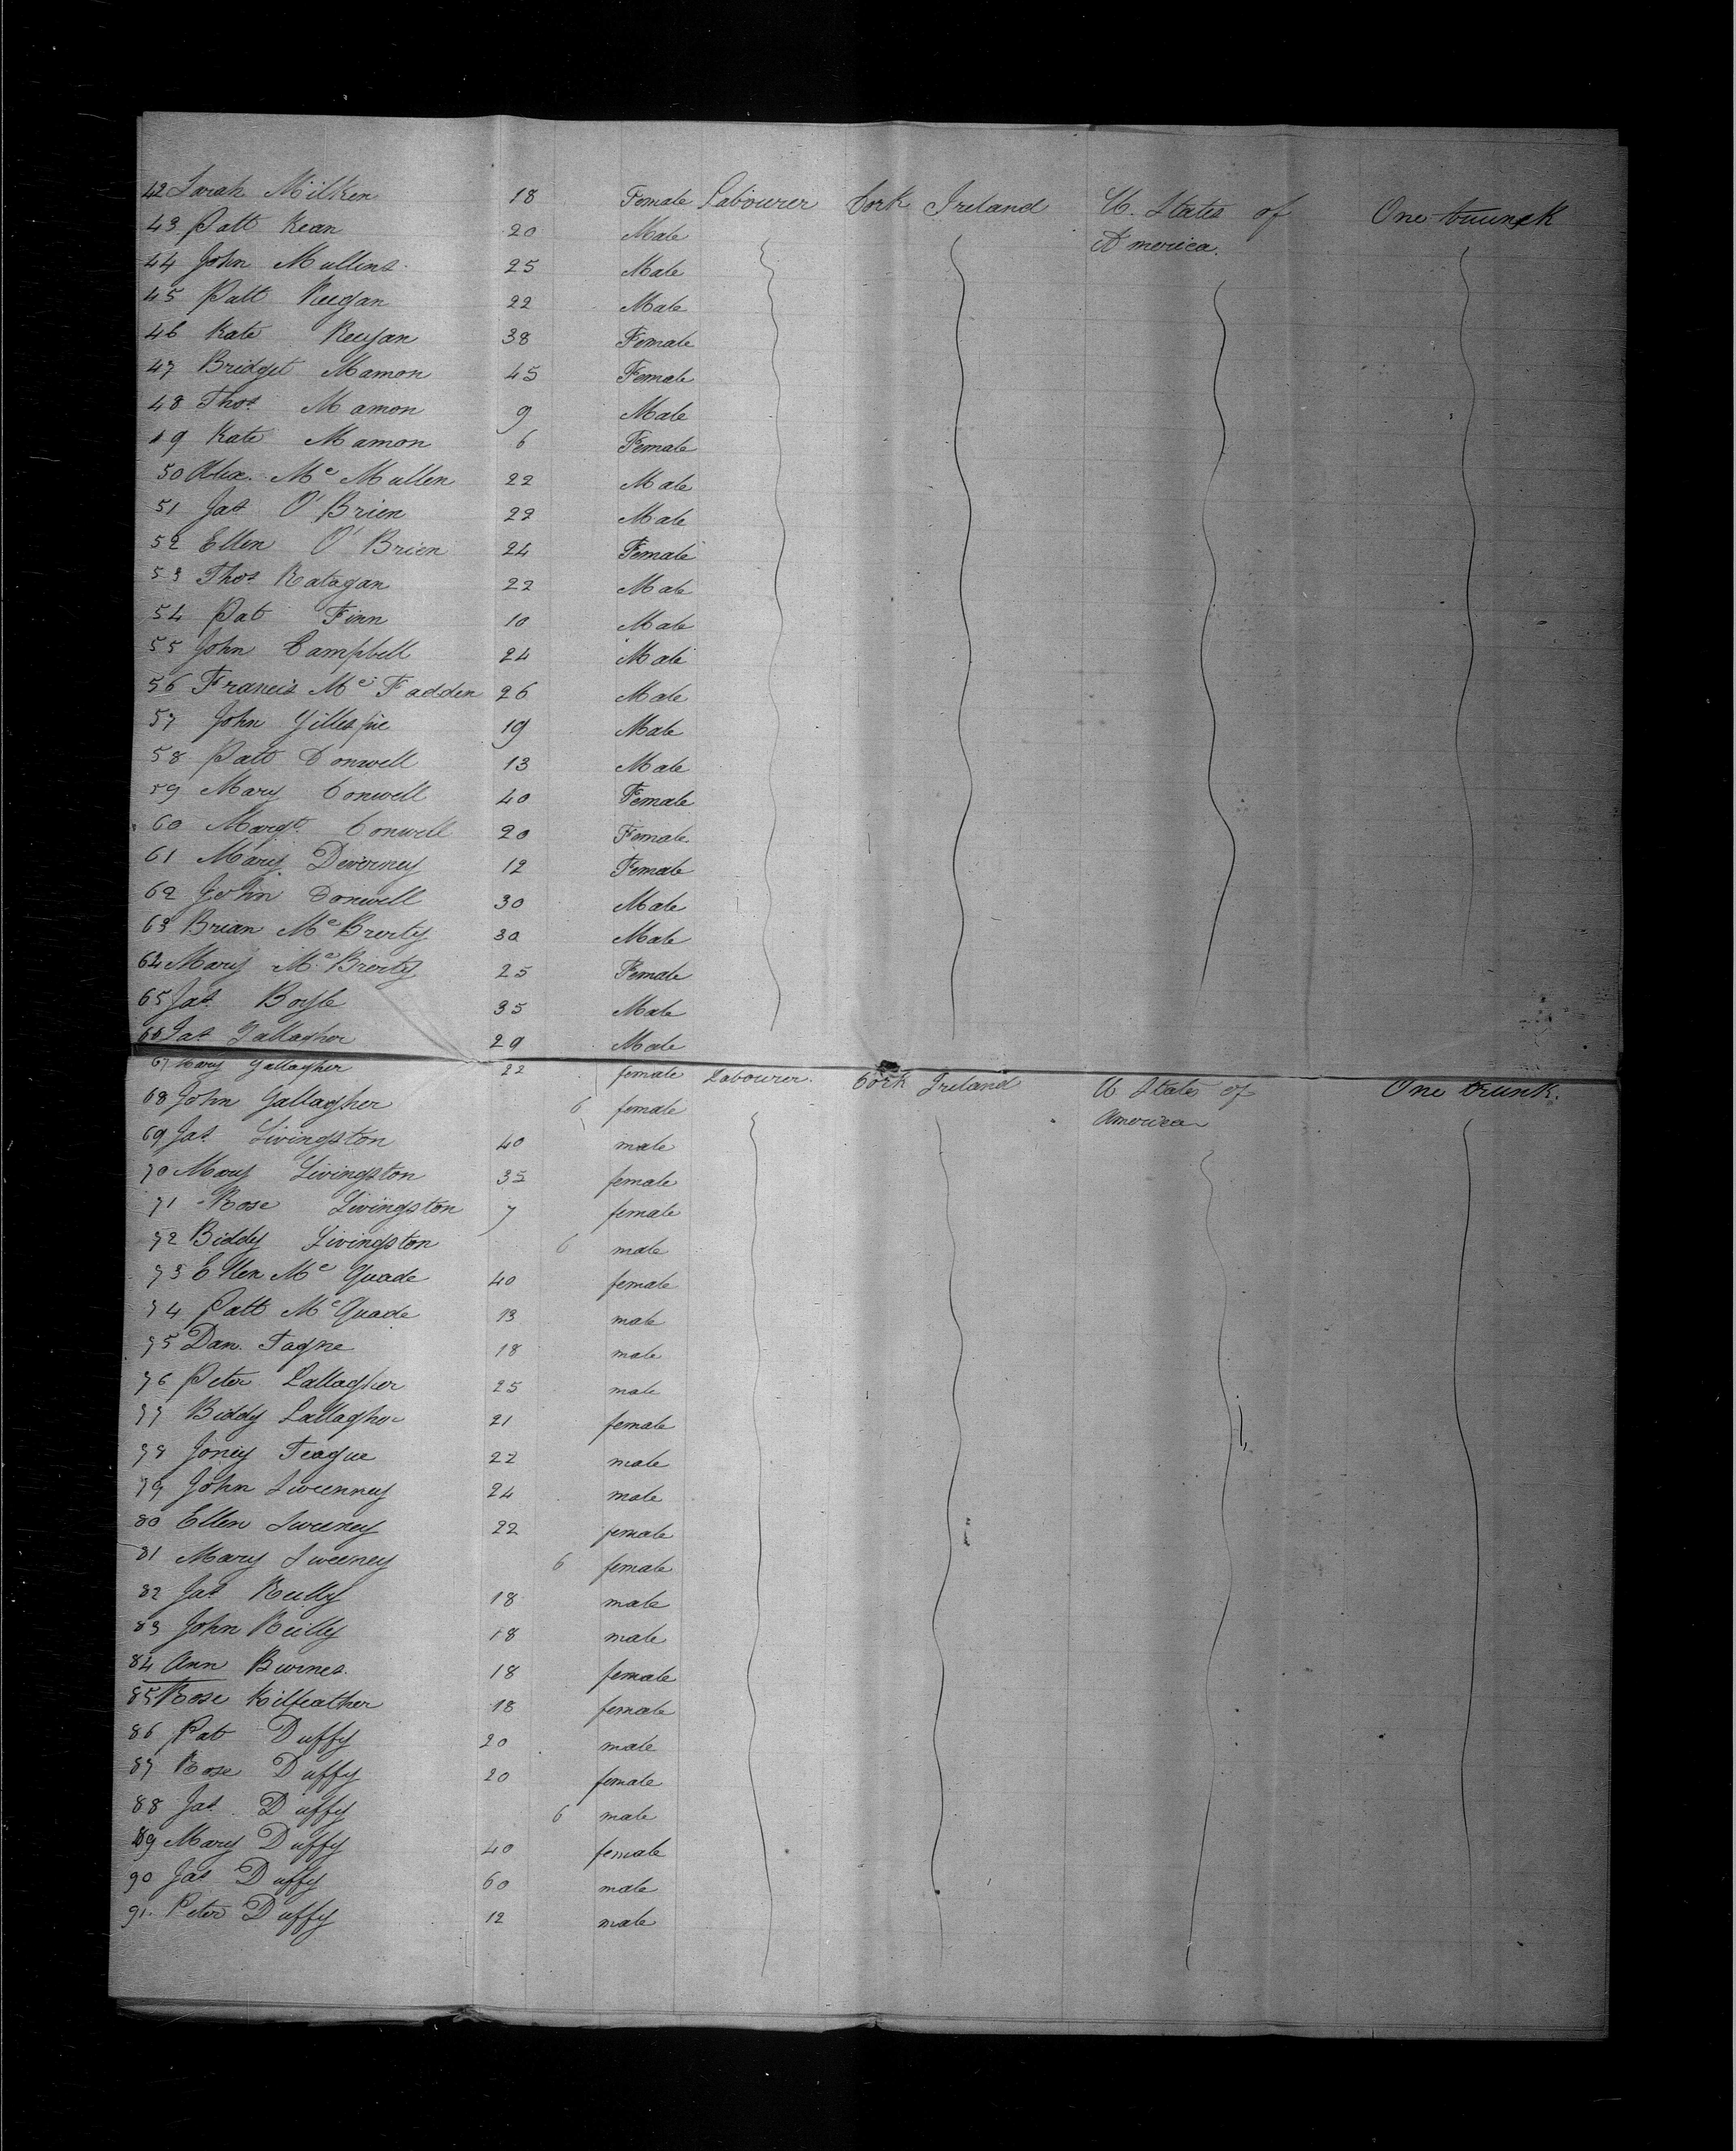 42 Sarah Milken 18 Female Labourer Cork Ireland U. States of One trunk
43 Patt Kean 20 Male America.
44 John Mullins 25 Male
45 Patt Keegan 22 Male
46 Kate Keegan 38 Female
47 Bridget Mamon 45 Female
48 Thos Mamon 9 Male
49 Kate Mamon 6 Female
50 Alex. Mc Mullen 22 Male
51 Jas O'Brien 22 Male
52 Ellen O'Brien 24 Female
53 Thos Ratagan 22 Male
54 Pat Finn 10 Male
55 John Campbell 24 Male
56 Francis Mc Fadden 26 Male
57 John Gillespie 19 Male
58 Patt Conwell 13 Male
59 Mary Conwell 40 Female
60 Margt Conwell 20 Female
61 Mary Deverney 12 Female
62 John Conwell 30 Male
63 Brian McBrerty 30 Male
64 Mary McBrerty 25 Female
65 Jas Boyle 35 Male
66 Jas Gallagher 29 Male
67 Mary Gallagher 22 female Labourer. Cork Ireland U States of One trunk.
68 John Gallagher 6 female America
69 Jas Livingston 40 male
70 Mary Livingston 35 female
71 Rose Livingston 7 female
72 Biddy Livingston 6 male
73 Ellen Mc Quade 40 female
74 Patt McQuade 13 male
75 Dan. Tagne 18 male
76 Peter Lallagher 25 male
77 Biddy Lallagher 21 female
78 Joney Teague 22 male
79 John Sweenney 24 male
80 Ellen Sweeney 22 female
81 Mary Sweeney 6 female
82 Jas Reilly 18 male
83 John Reilly 18 male
84 Ann Burnes. 18 female
85 Rose Kilfeather 18 female
86 Pat Duffy 20 male
87 Rose Duffy 20 female
88 Jas Duffy 6 male
89 Mary Duffy 40 female
90 Jas Duffy 60 male
91. Peter Duffy 12 male